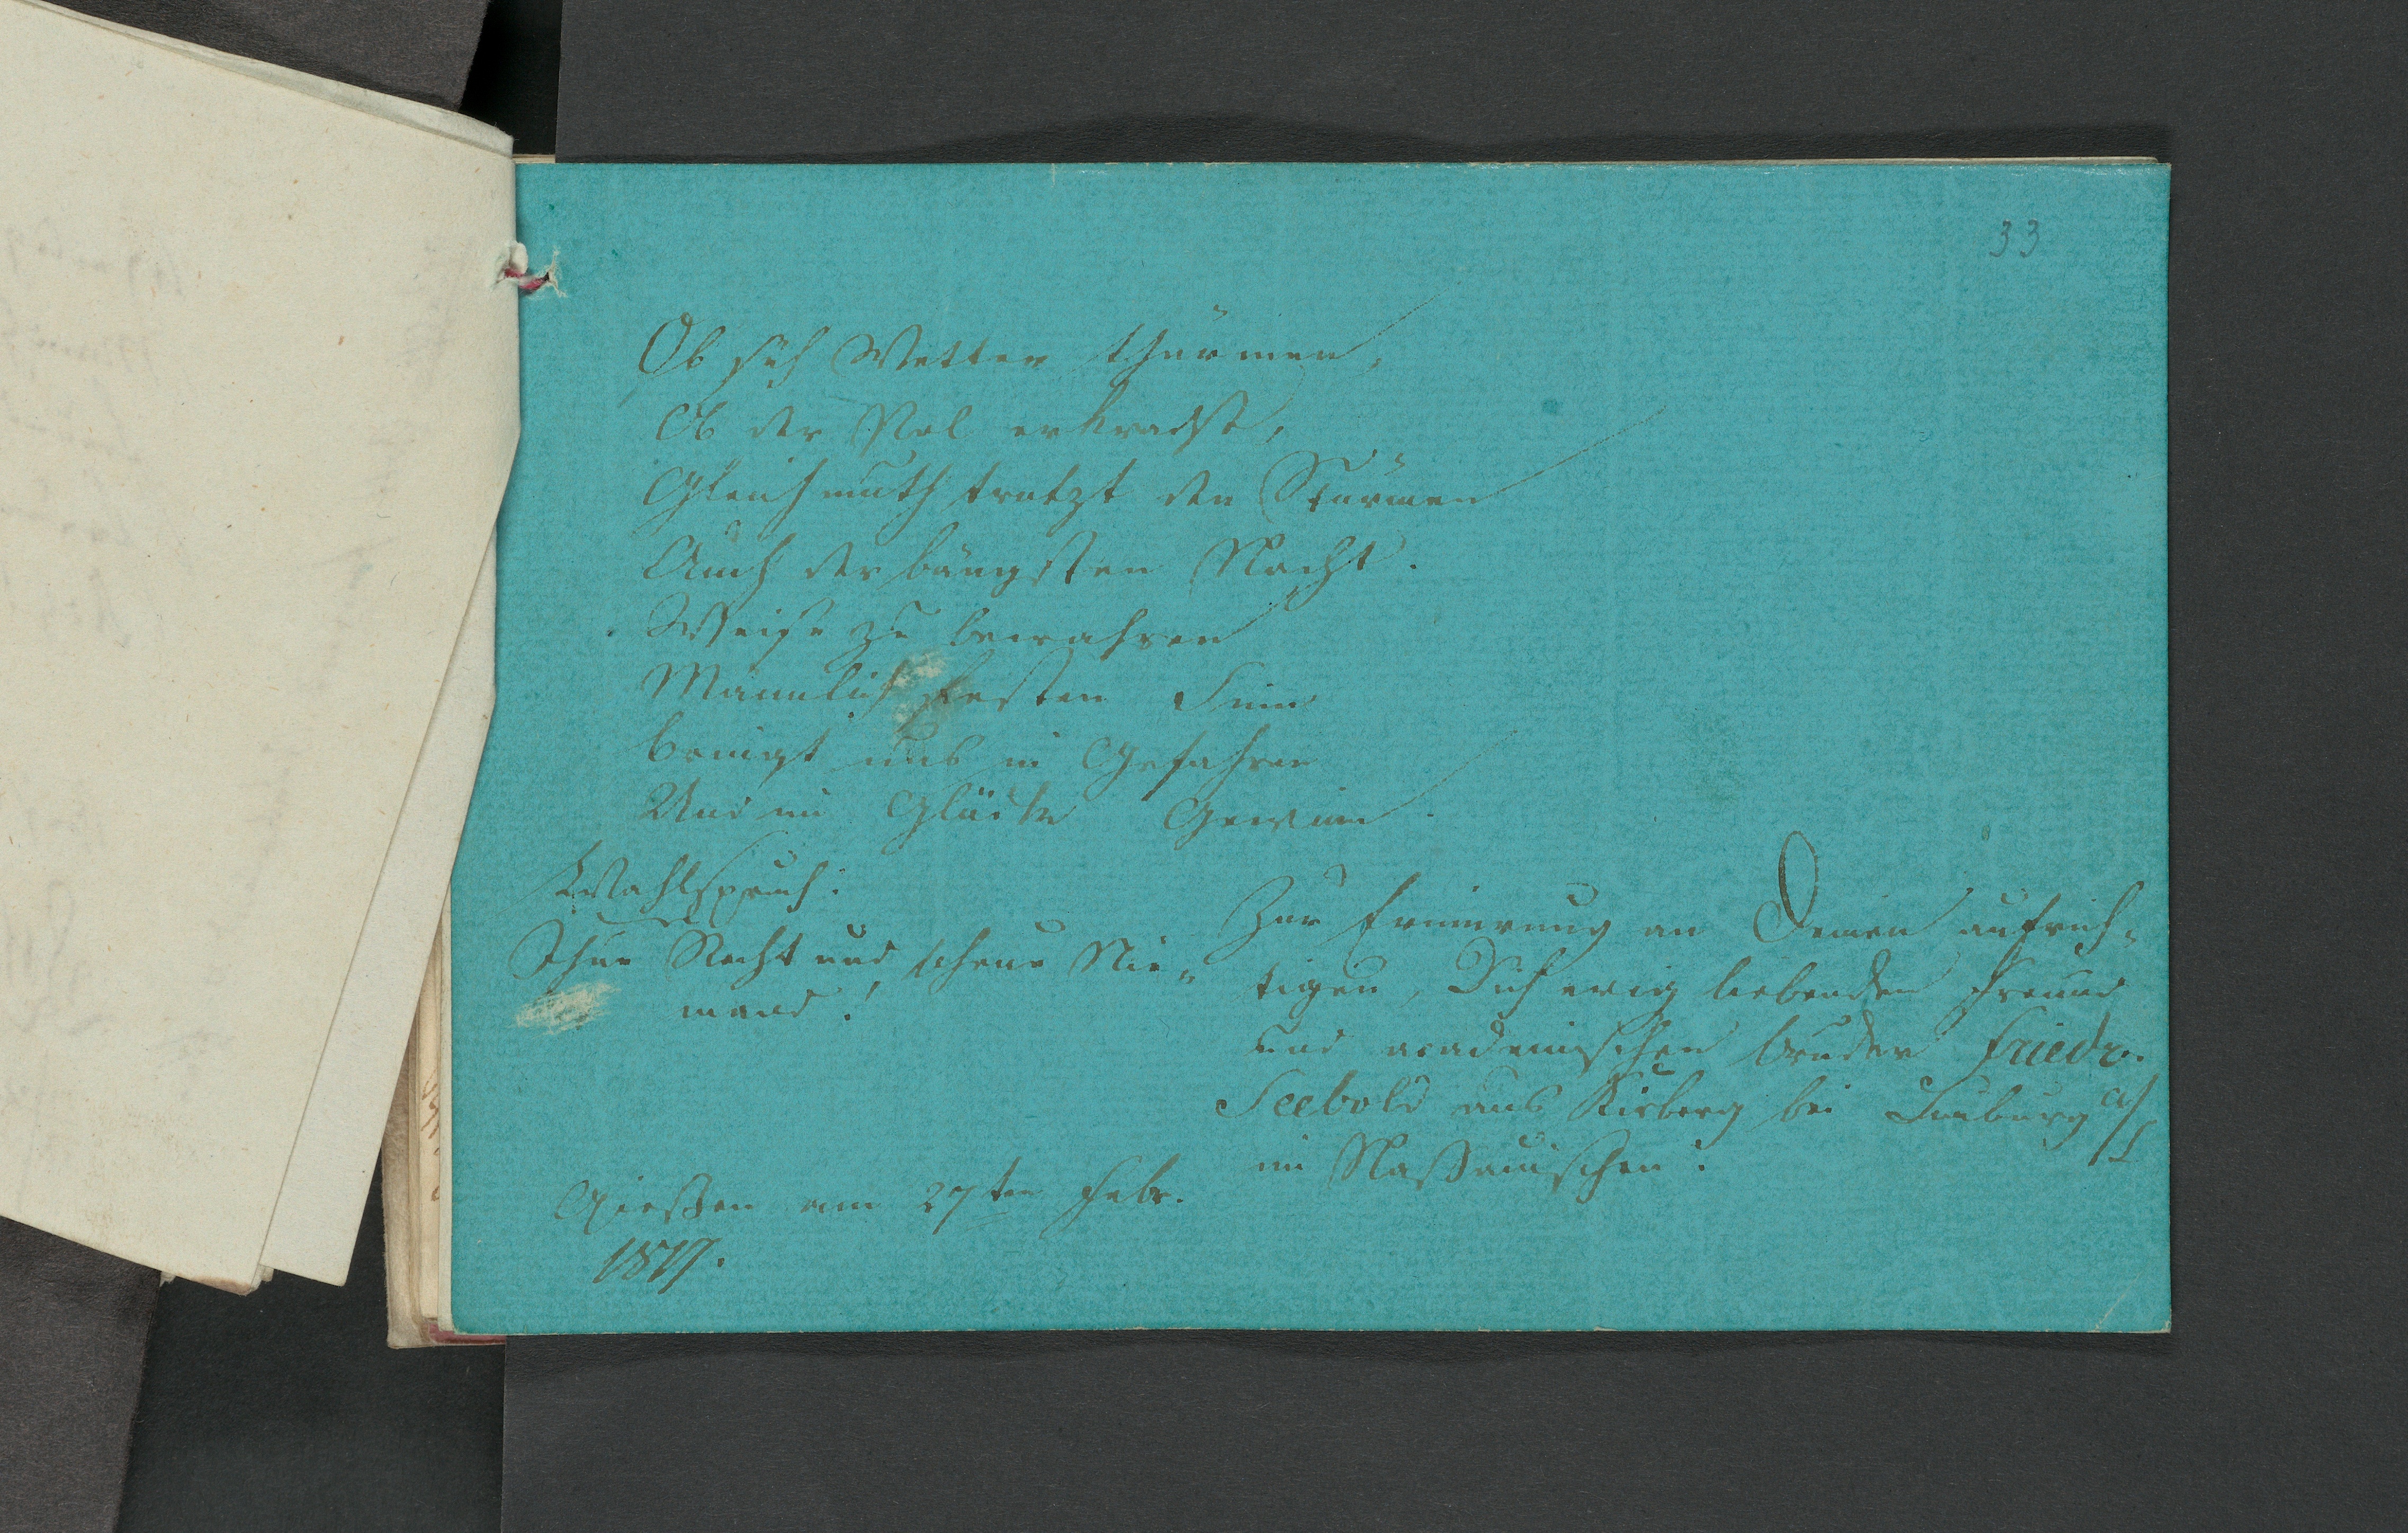 33
Ob sich Wetter thürmen,
Ob der Pol erkracht,
Gleichmuth trotzt den Stürmen
Auch der bängsten Nacht.
Weise zu bewahren
Männlich festen Sinn
bringt uns in Gefahren
Und im Glücke Gewinn.
Wahlspruch:
Thue Recht und scheue Nie-
mand!
Zur Erinnerung an Deinen aufrich-
tigen, Dich ewig liebenden Freund
und academischen bruder Friedr.
Seebold aus Kirberg bei Limburg a/L
im Naßauischen.
Gießen am 27ten Febr.
1817.